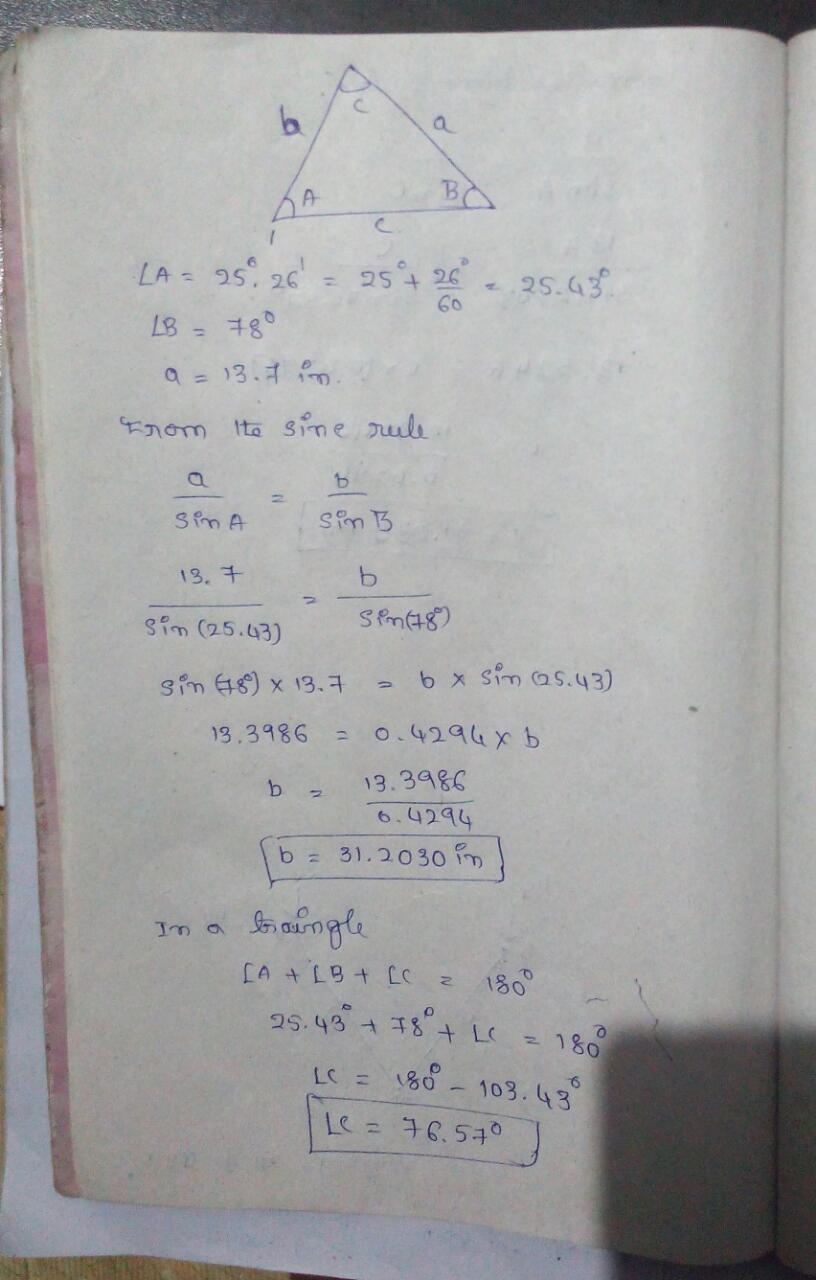 C
b
a
A
B
c
∠A = 25°. 26' = 25° + 26°/60 = 25.43°.
∠B = 78°
a = 13.7 in.
From the sine rule
a/sin A = b/sin B
13.7/sin (25.43) = b/sin(78°)
sin (78°) x 13.7 = b x sin (25.43)
13.3986 = 0.4294 x b
b = 13.3986/0.4294
b = 31.2030 in
In a traingle
∠A + ∠B + ∠C = 180°
25.43° + 78° + ∠C = 180°
∠C = 180° - 103.43°
∠C = 76.57°